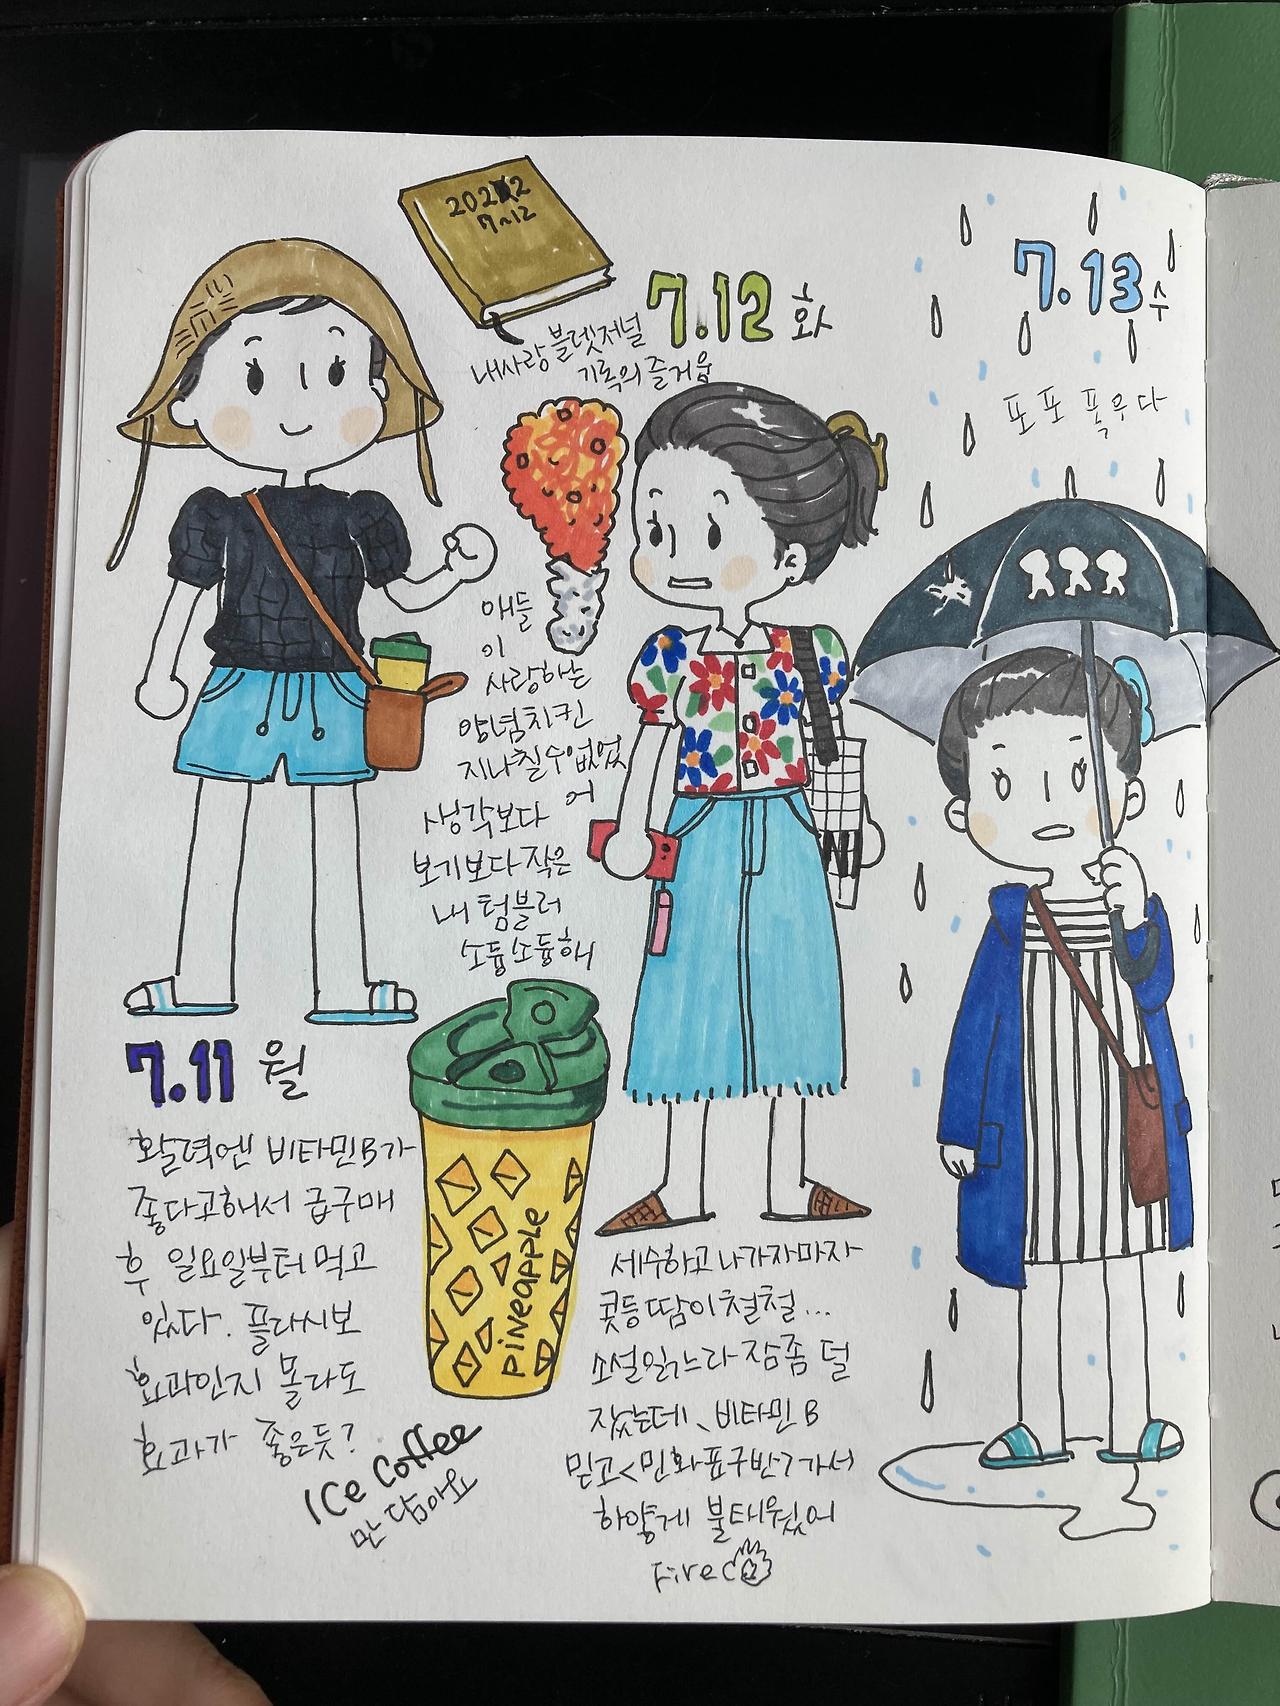 20212
7~12
내사랑 불렛저널
기록의 즐거움
7.12 화
7.13 수
포 포 폭우다
애들
이
사랑하는
양념치킨
지나칠수없었
어
생각보다
보기보다 작은
내 텀블러
소듕소듕해
PiNeapple
7.11 월
활력엔 비타민B가
좋다고해서 급구매
후 일요일부터 먹고
있다. 플라시보
효과인지 몰라도
효과가 좋은듯?
ICe Coffee
만 담아요
세수하고 나가자마자
콧등 땀이 철철...
소설읽느라 잠좀 덜
잤는데、비타민 B
믿고<민화표구반>가서
하얗게 불태웠어
Fire